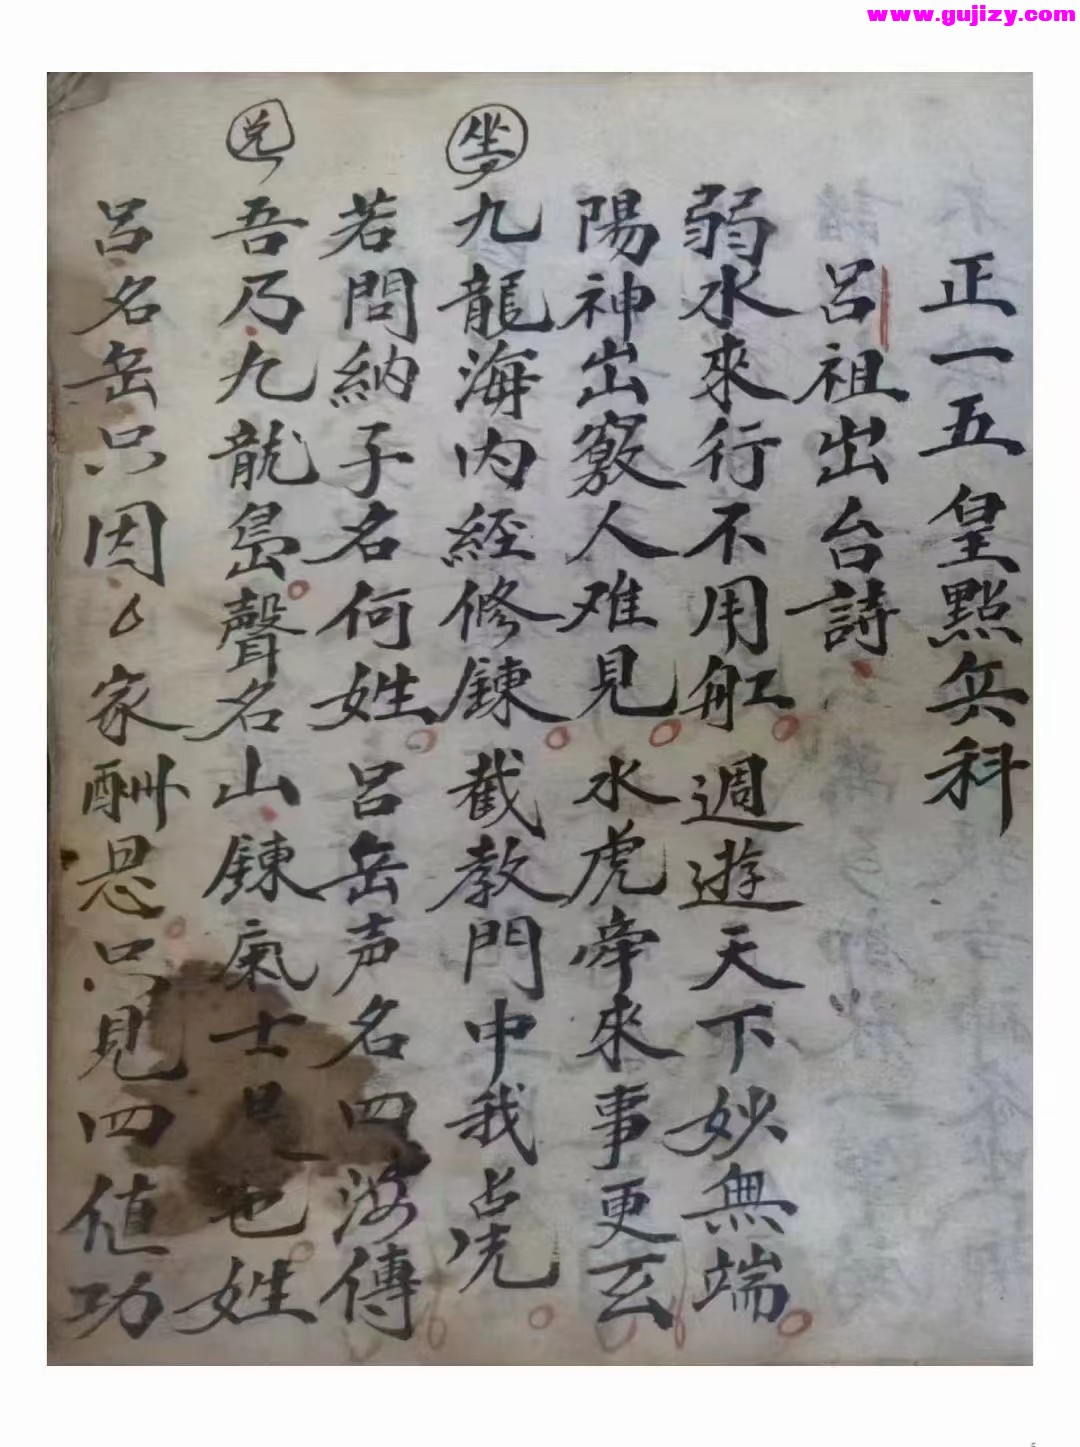 www.gujizy.com
正一五皇點兵科
呂祖出台詩
弱水來行不用舡 週遊天下妙無端
陽神出竅人难見 水虎牵來事更玄
坐 九龍海内經修鍊 截教門中我占先
若問納子名何姓 呂岳声名四海傳
兑 吾乃九龍島聲名山鍊氣士是也姓
呂名岳只因 家酬恩只見四值功